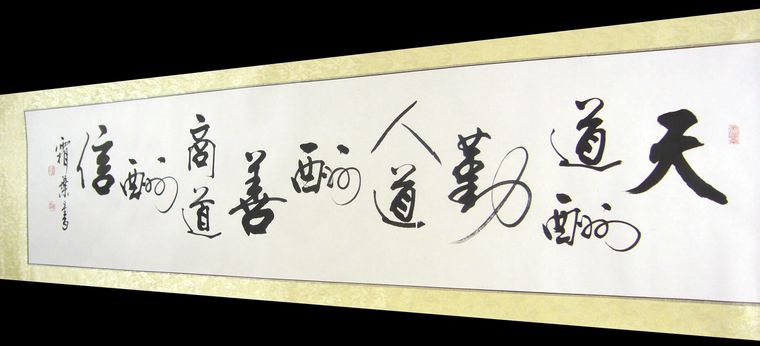 天道酬勤人道酬善商道酬信
霜叶书